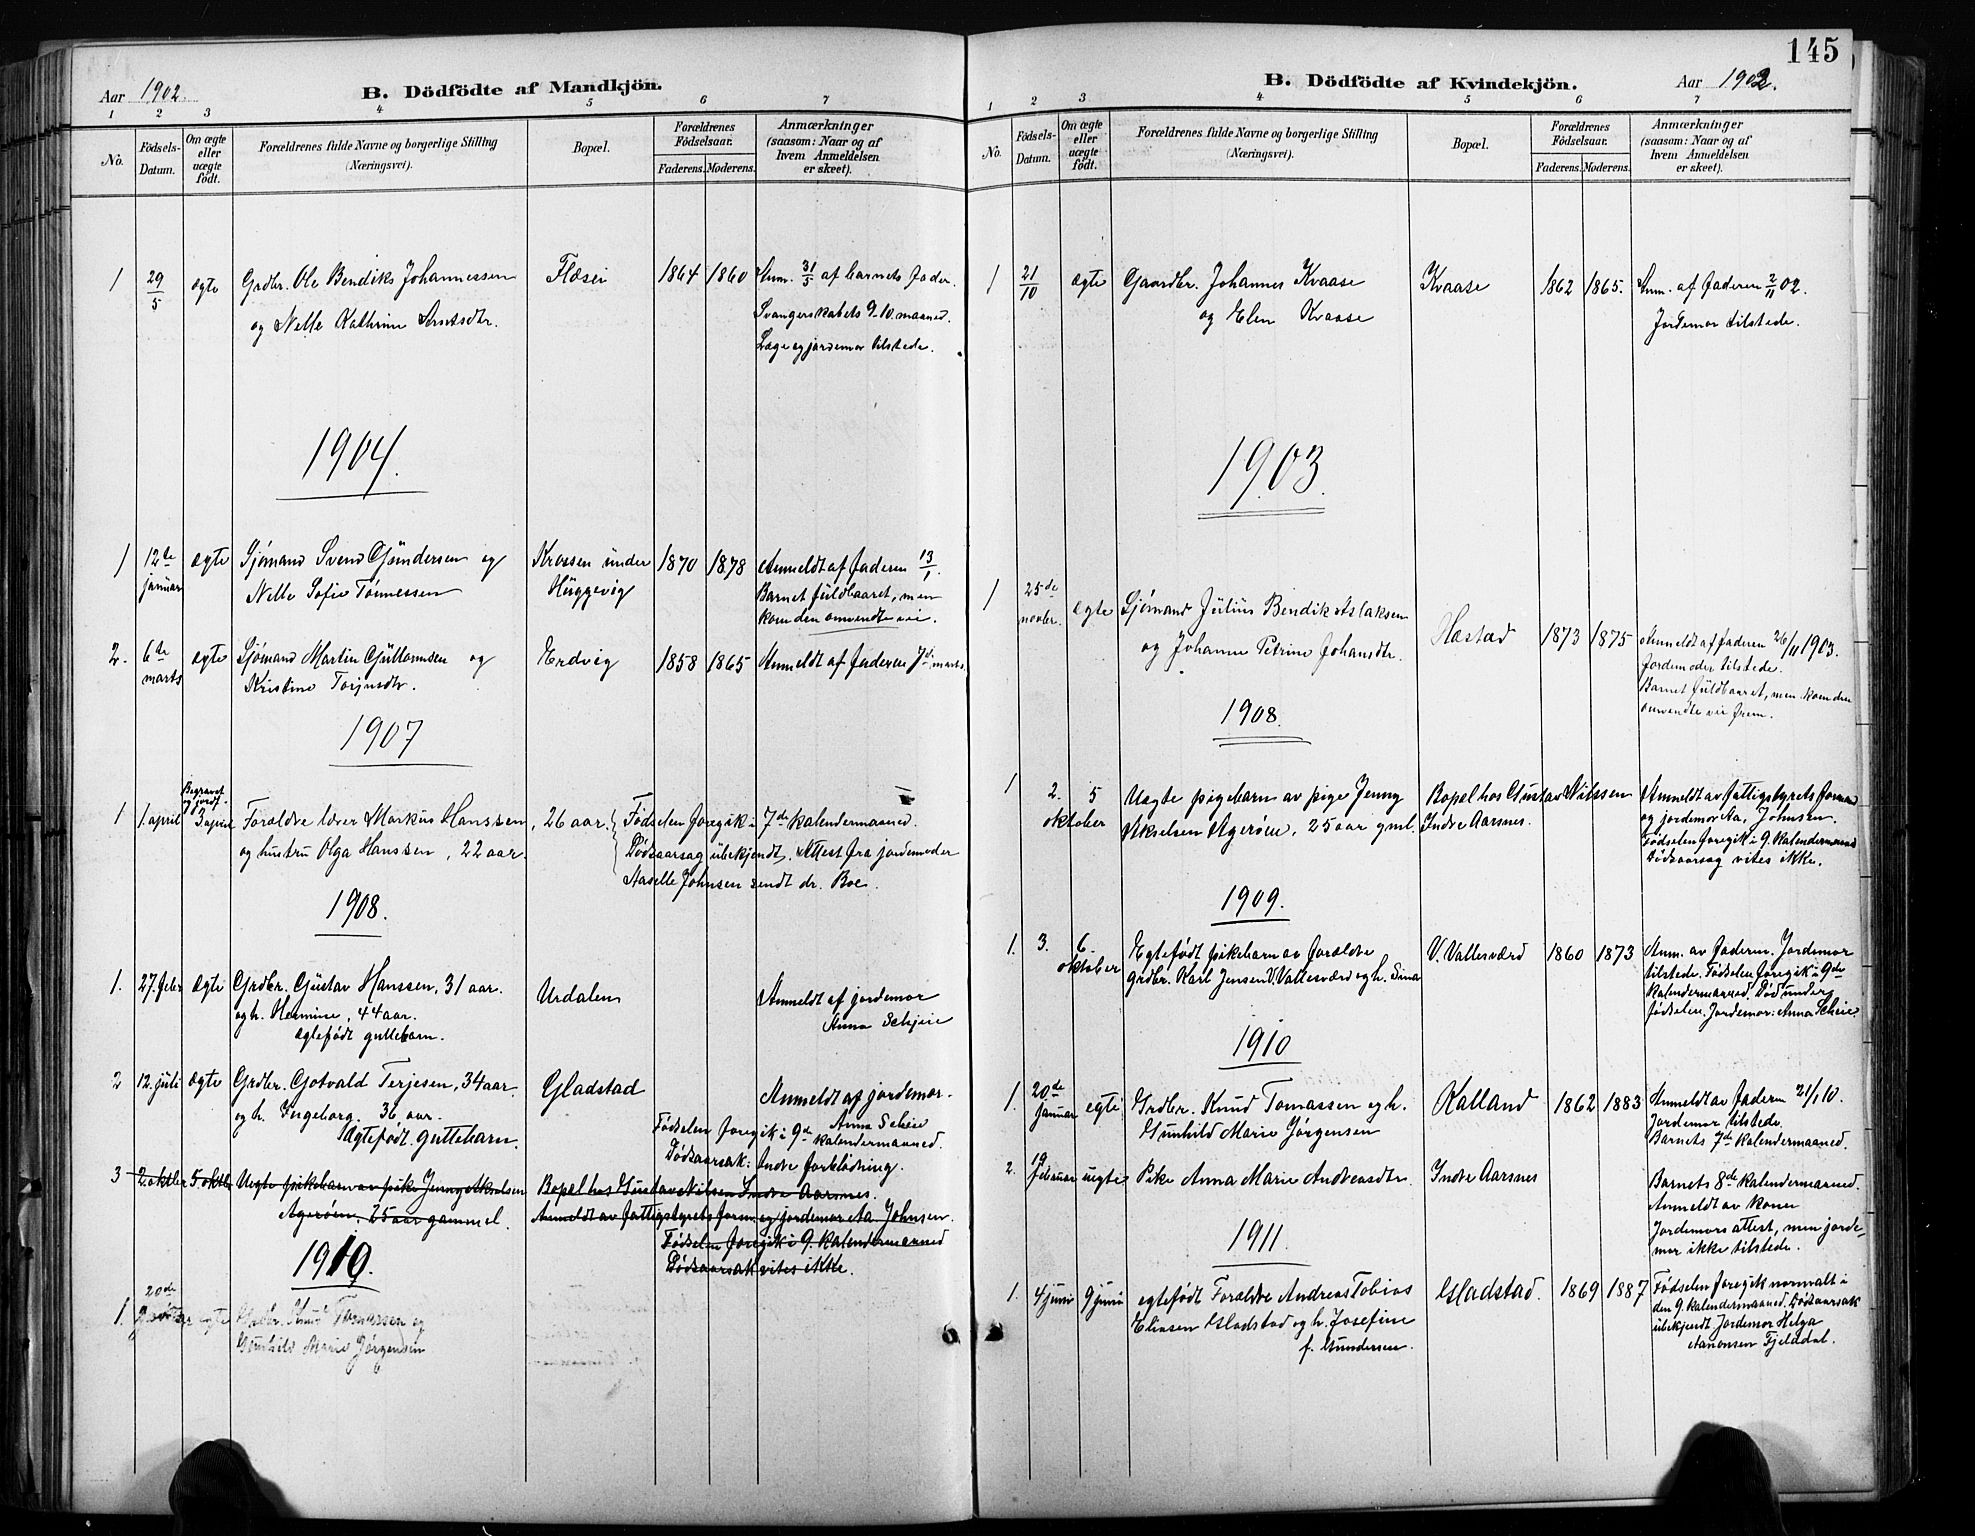 Aar 1902.
B. Dödfödte af Mandkjön.
1 2 3 4 5 6 7
No.
Födsels-Datum.
Om ægte eller uægte født.
Forældrenes fulde Navne og borgerlige Stilling
(Næringsvei).
Bopæl.
Forældrenes Födselsaar.
Faderens. Moderens.
Anmærkninger
(saasom: Naar og af
hvem Anmeldelsen
er skeet).
1 29/5 ægte Grdbr. Ole Bendiks Johannessen Flæsei 1864 1860 Anm. 31/5 af barnets fader.
og Nelle Kathrine Svangerskabets 9.10. maaned.
Læge og jordemor tilstede.
1904.
1 12te januar ægte Sjømand Svend Gundersen og Krossen under 1870 1878 Anmeldt af faderen 13/1.
Nelle Sofie Tønnessen Huggevig Barnet fuldbaaret, men
kom den omvendte vei.
2. 6te marts ægte Sjømand Martin Guttormsen og Erdvig 1858 1865 Anmeldt af faderen 7de marts
Kristine Torjusdtr.
1907
Begravet og jordf.
1 1. april 3 april Forældre lærer Markus Hanssen, 26 aar. Fødselen foregik i 7de kalendermaaned.
og hustru Olga Hanssen, 22 aar. Dødsaarsag ubekjendt. Attest fra jordemoder
Johnsen sendt dr. Boe.
1908.
1. 27. febr ægte Grdbr. Gustav Hanssen, 31 aar. Urdalen Anmeldt af jordemor
og h. Hermine, 44 aar. Anna Schjeie
ægtefødt guttebarn.
2 12. juli ægte Grdbr. Gotvald Terjesen, 34 aar. Gladstad Anmeldt af jordemor
og h. Ingeborg, 36 aar. Anna Scheie
Ægtefødt guttebarn. Fødselen foregik i 9de kalendermaaned.
Dødsaarsak: Indre forblødning.
3 2. oktbr 5 oktbr Uegte pikebarn av pike Jenny Akselsen Bopel hos Gustav Nilsen Indre Aarsnes.
Agerøen, 25 aar gammel. Anmeldt av fattigstyrets form. og jordemor Aa. Johnsen.
Fødselen foregik i 9. kalendermaaned
Dødsaarsak vites ikke.
1910.
1. 20de egte Grdbr. Knud Tomassen og
Gunhild Marie Jørgensen
145
B. Dödfödte af Kvindekjön.
Aar 1902.
1 2 3 4 5 6 7
No.
Födsels-Datum.
Om ægte eller uægte födt.
Forældrenes fulde Navne og borgerlige Stilling
(Næringsvei).
Bopæl.
Forældrenes Födselsaar.
Faderens. Moderens.
Anmærkninger
(saasom: Naar og af
hvem Anmeldelsen
er skeet).
1 21/10 ægte Gaardbr. Johannes Kvaase Kvaase 1862 1865. Anm. af faderen 2/11 02.
og Elen Kvaase Jordemor tilstede.
1903.
1 25de novbr. egte Sjømand Julius Bendik Aslaksen Hæstad 1873 1875 Anmeldt af faderen 26/11 1903.
og Johanne Petrine Johansdtr. Jordemoder tilstede.
Barnet fuldbaaret, men kom den
omvendte vei frem.
1908.
1 2. oktober 5 Uegte pigebarn av pige Jenny Bopel hos Gustav Nilssen Anmeldt av fattigstyrets formand
Akselsen Agerøen, 25 aar gml. Indre Aarsnes. og jordemor Aa. Johnsen.
Fødselen foregik i 9. kalendermaaned
Dødsaarsag vites ikke.
1909.
1. 3. 6. oktober Egtefødt pikebarn av forældre V. Vallesværd 1860 1873 Anm. av faderen. Jordemor
grdbr. Karl Jensen V. Vallesværd og h. Sina tilstede. Fødselen foregik i 9de
kalendermaaned. Død under
fødselen. Jordemor: Anna Scheie.
1910
1. 20de januar egte Grdbr. Knud Tomassen og h. Kalland 1862 1883 Anmeldt av faderen 21/1 10.
Gunhild Marie Jørgensen Jordemor tilstede.
Barnets 7de kalendermaaned.
2. 19 februar uegte Pike Anna Marie Andreasdtr. Indre Aarsnes Barnets 8de kalendermaaned.
Anmeldt av konen
Jordemors attest, men jorde-
mor ikke tilstede.
1911.
1. 4 juni 9 juni egtefødt Forældre Andreas Tobias Gladstad. 1869 1887 Fødselen foregik normalt i
Eliasen Gladstad og h. Josefine den 9. kalendermaaned. Dødsaarsak
f. Gundersen. ubekjendt Jordemor Helga
Aanonsen Fjelddal.